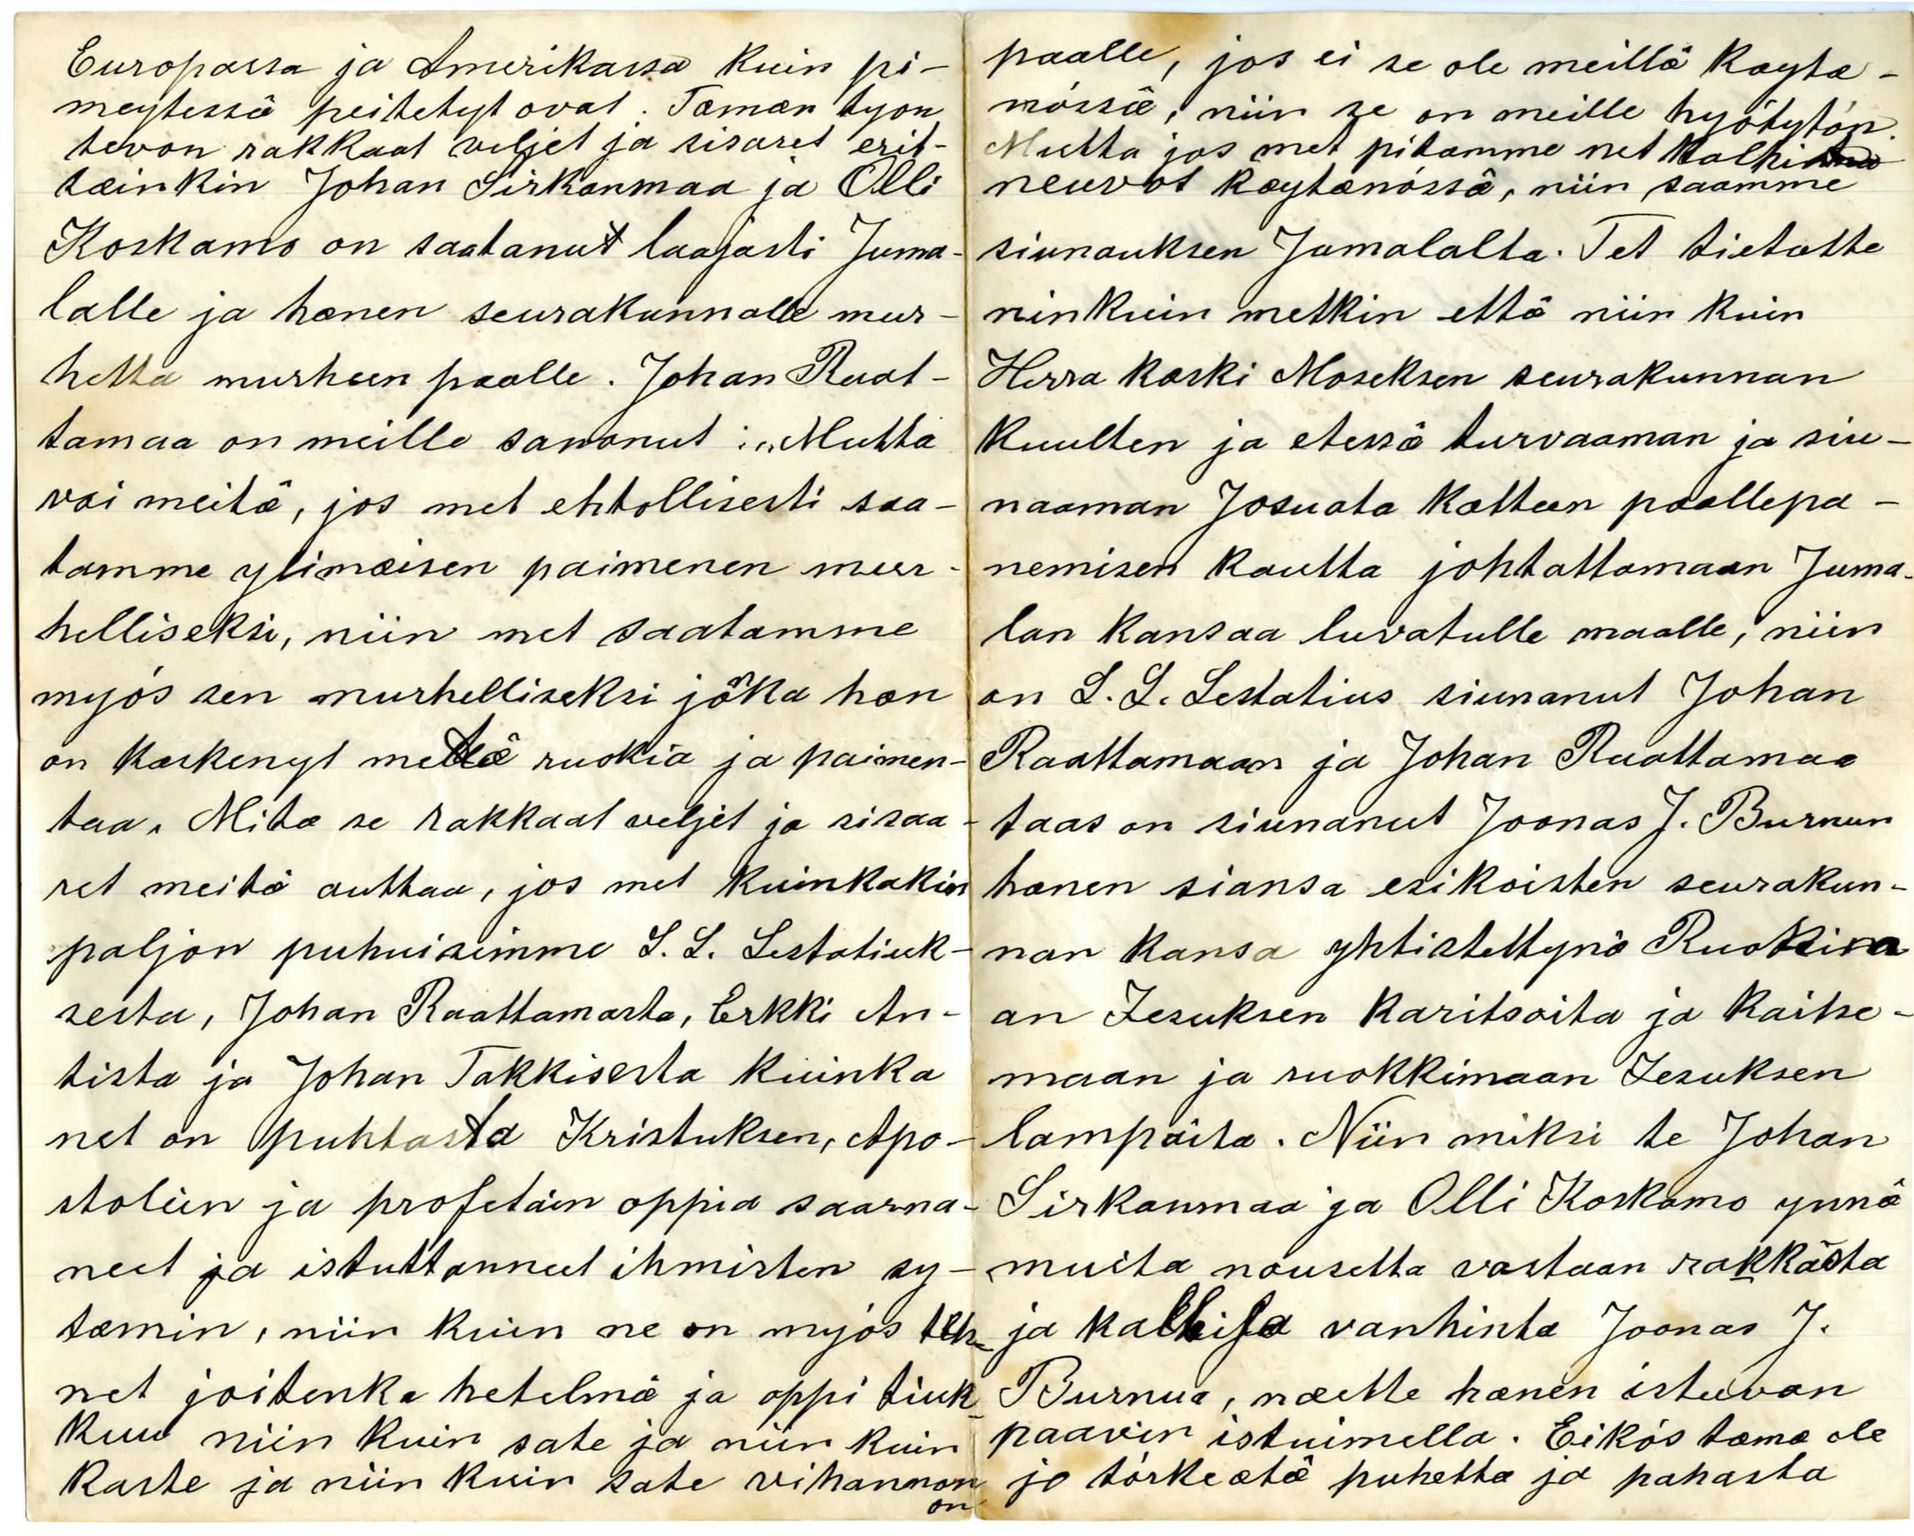 Europassa ja Amerikassa kuin pi-
meytessä peitetyt ovat. Tæmæn tyon
tevon rakkaat veljet ja sisaret erit-
tæinkin Johan Sirkanmaa ja Olli
Koskamo on saatanut laajasti Juma-
lalle ja hænen seurakunnalle mur-
hetta murheen paalle. Johan Raat-
tamaa on meille sanonut: „Mutta
voi meitä, jos met ehtollisesti saa-
tamme ylimæisen paimenen mur-
helliseksi, niin met saatamme
myós sen murhelliseksi joka hæn
on kæskenyt meitä ruokia ja paimen-
taa. Mitæ se rakkaat veljet ja sisaa-
ret meitä auttaa, jos met kuinkakin
paljon puhuisimme L. L. Lestatiuk-
sesta, Johan Raattamasta, Erkki An-
tista ja Johan Takkisesta kuinka
net on puhtasta Kristuksen, Apo-
stoliin ja profetáin oppia saarna-
neet ja istuttanneet ihmisten sy-
tæmin, niin kuin ne on myós teh-
net joitenka hetelmä ja oppi tiuk-
kuu niin kuin sate ja niin kuin
kaste ja niin kuin sate vihannon
on
paalle, jos ei se ole meillä kæytæ-
nóssä, niin se on meille hyótytón.
Mutta jos met pitamme net kalhi
neuvot kæytænóssä, niin saamme
siunauksen Jumalalta. Tet tietætte
ninkuin metkin että niin kuin
Herra kæski Moseksen seurakunnan
kuulten ja etessä turvaaman ja siu-
naaman Josuata kætteen pæællepa-
nemisen kautta johtattamaan Juma-
lan kansaa luvatulle maalle, niin
on L. L. Lestatius siunanut Johan
Raattamaan ja Johan Raattamaa
taas on siunanut Joonas J. Burnun
hænen siansa esikoisten seurakun-
nan kansa yhtistettynä Ruokima
an Jesuksen karitsoita ja kaitse-
maan ja ruokkimaan Jesuksen
lampaita. Niin miksi te Johan
Sirkanmaa ja Olli Koskamo ynnä
muita nousetta vastaan rakkásta
ja kallista vanhinta Joonas J.
Burnua, næette hænen istuvan
paavin istuimella. Eikós tæmæ ole
jo tórkeætä puhetta ja pahasta